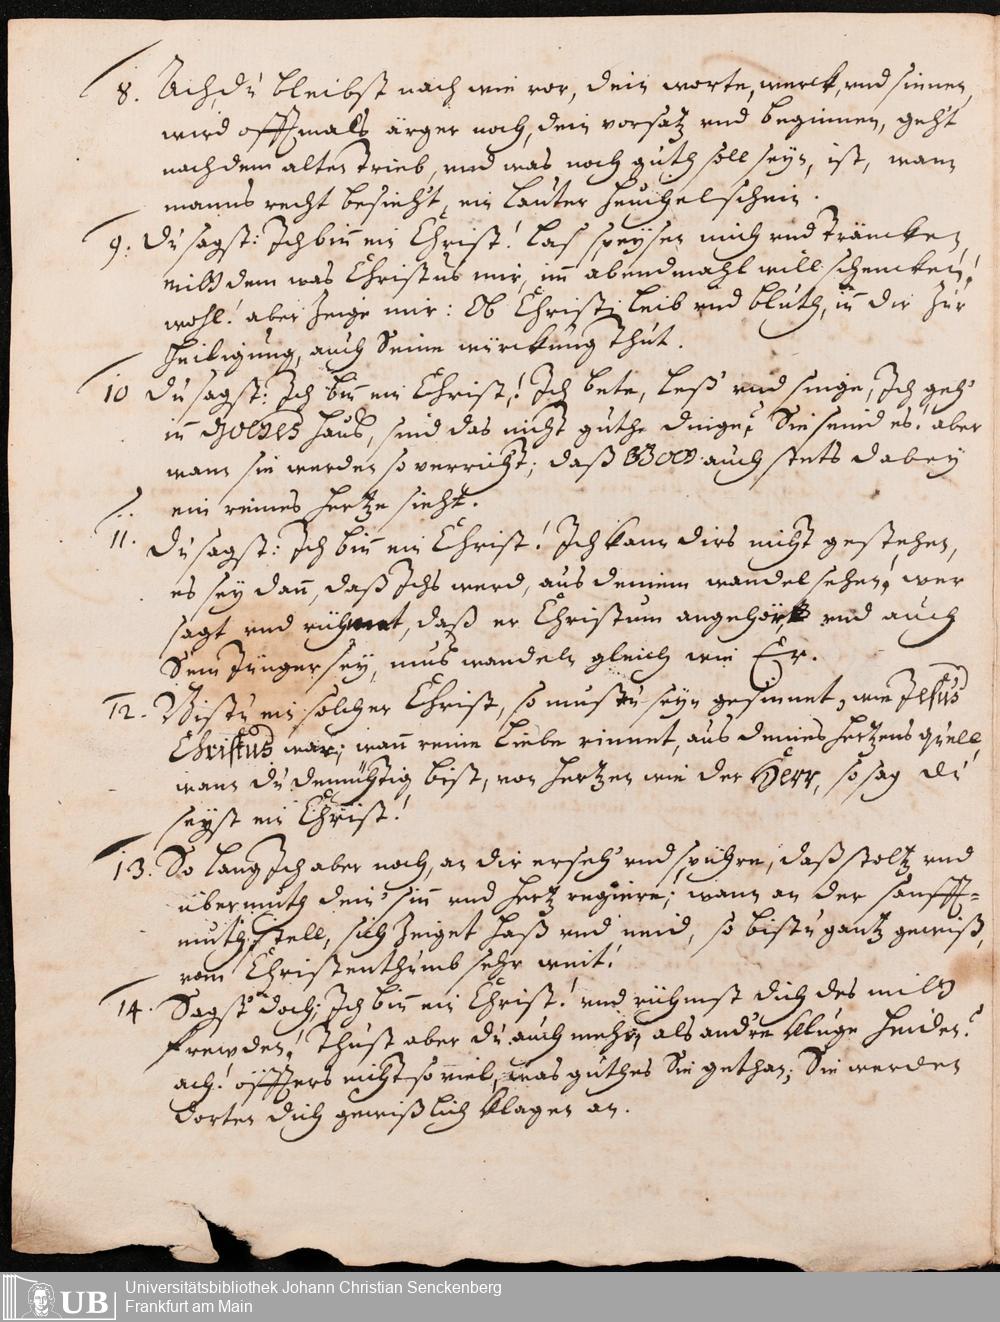 8. Ach, du bleibst nach wie vor, dein worte, werck, und sinnen,
wird offtmals ärger noch, dein vorsatz und beginnen, geht
nach dem alten trieb, und was noch guth soll seyn, ist, wann
manns recht besieht, ein lauter heuchelschein.
9. Du sagst: Ich bin ein Christ! laß speysen mich und träncken,
mitt dem was Christus mir, im abendmahl will schencken!
wohl! aber zeige mir: Ob Christi leib und bluth, in dir zur
heiligung, auch Seine würckung thut.
10 Du sagst: Ich bin ein Christ,! Ich bete, leß und singe, Ich geh
in GOTTES hauß, sind das nicht guthe dinge? Sie seind es! aber
wann sie werden so verricht; daß GOTT auch stets dabey
ein reines hertze sieht.
11. Du sagst: Ich bin ein Christ! Ich kann dirs nicht gestehen,
es sey dann, daß Ichs werd, aus deinem wandel sehen! wer
sagt und rühmet, daß er Christum angehör, und auch
Sein Jünger sey, mus wandeln gleich wie Er.
12. Bistu ein solcher Christ, so mustu seyn gesinnet, wie Jesus
Christus war; wann reine liebe rinnet, aus deines hertzens quell,
wann du demühtig bist, von hertzen wie der Herr, so sag du
seyst ein Christ!
13. So lang Ich aber noch, an dir erseh und spühre, daß stoltz und
übermuth dein sinn und hertz regiere; wann an der sanfft=
muth, stell, sich zeiget haß und neid, so bistu gantz gewiß,
vom Christenthumb sehr weit!
14. Sagst doch; Ich bin ein Christ! und rühmst dich des mitt
frewden! Thust aber du auch mehr, als andre kluge heiden?
ach! öffters nicht so viel, was guthes Sie gethan; Sie werden
dorten dich gewißlich klagen an.
UB
Universitätsbibliothek Johann Christian Senckenberg
Frankfurt am Main